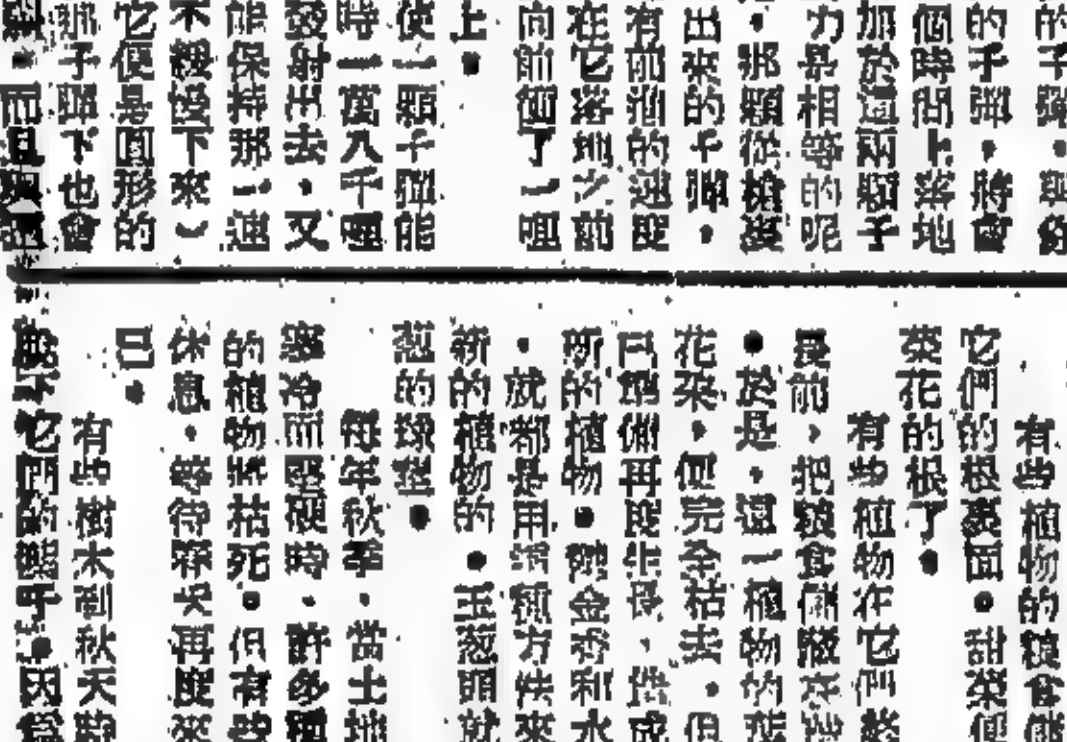 的子彈，與你
的子彈，將會
個時間上落地
加於這兩顆子
力是相等的呢
，那顆從槍膛
出來的子彈，
有前進的速度
在它落地之前
向前衝了一哩
上。
使一顆子彈能
時一萬八千哩
發射出去，又
能保持那一速
不緩慢下來）
它便是圓形的
那子彈下也會
而且
有些植物的糧食儲
它們的根裏面。甜菜便
菜花的根了。
有些植物在它們
以前，把糧食儲藏在
。於是，這一植物的葉
花朵，便完全枯去，但
已準備再度生長，成
新的植物。鬱金香和水
，就都是用這種方法來
新的植物的。玉葱頭就
葱的球莖。
每年秋季，當土地
寒冷而堅硬時，許多
的植物將枯死。但有些
休息，等待春天再度來
已。
有些樹木到秋天時
它們的葉子。因為